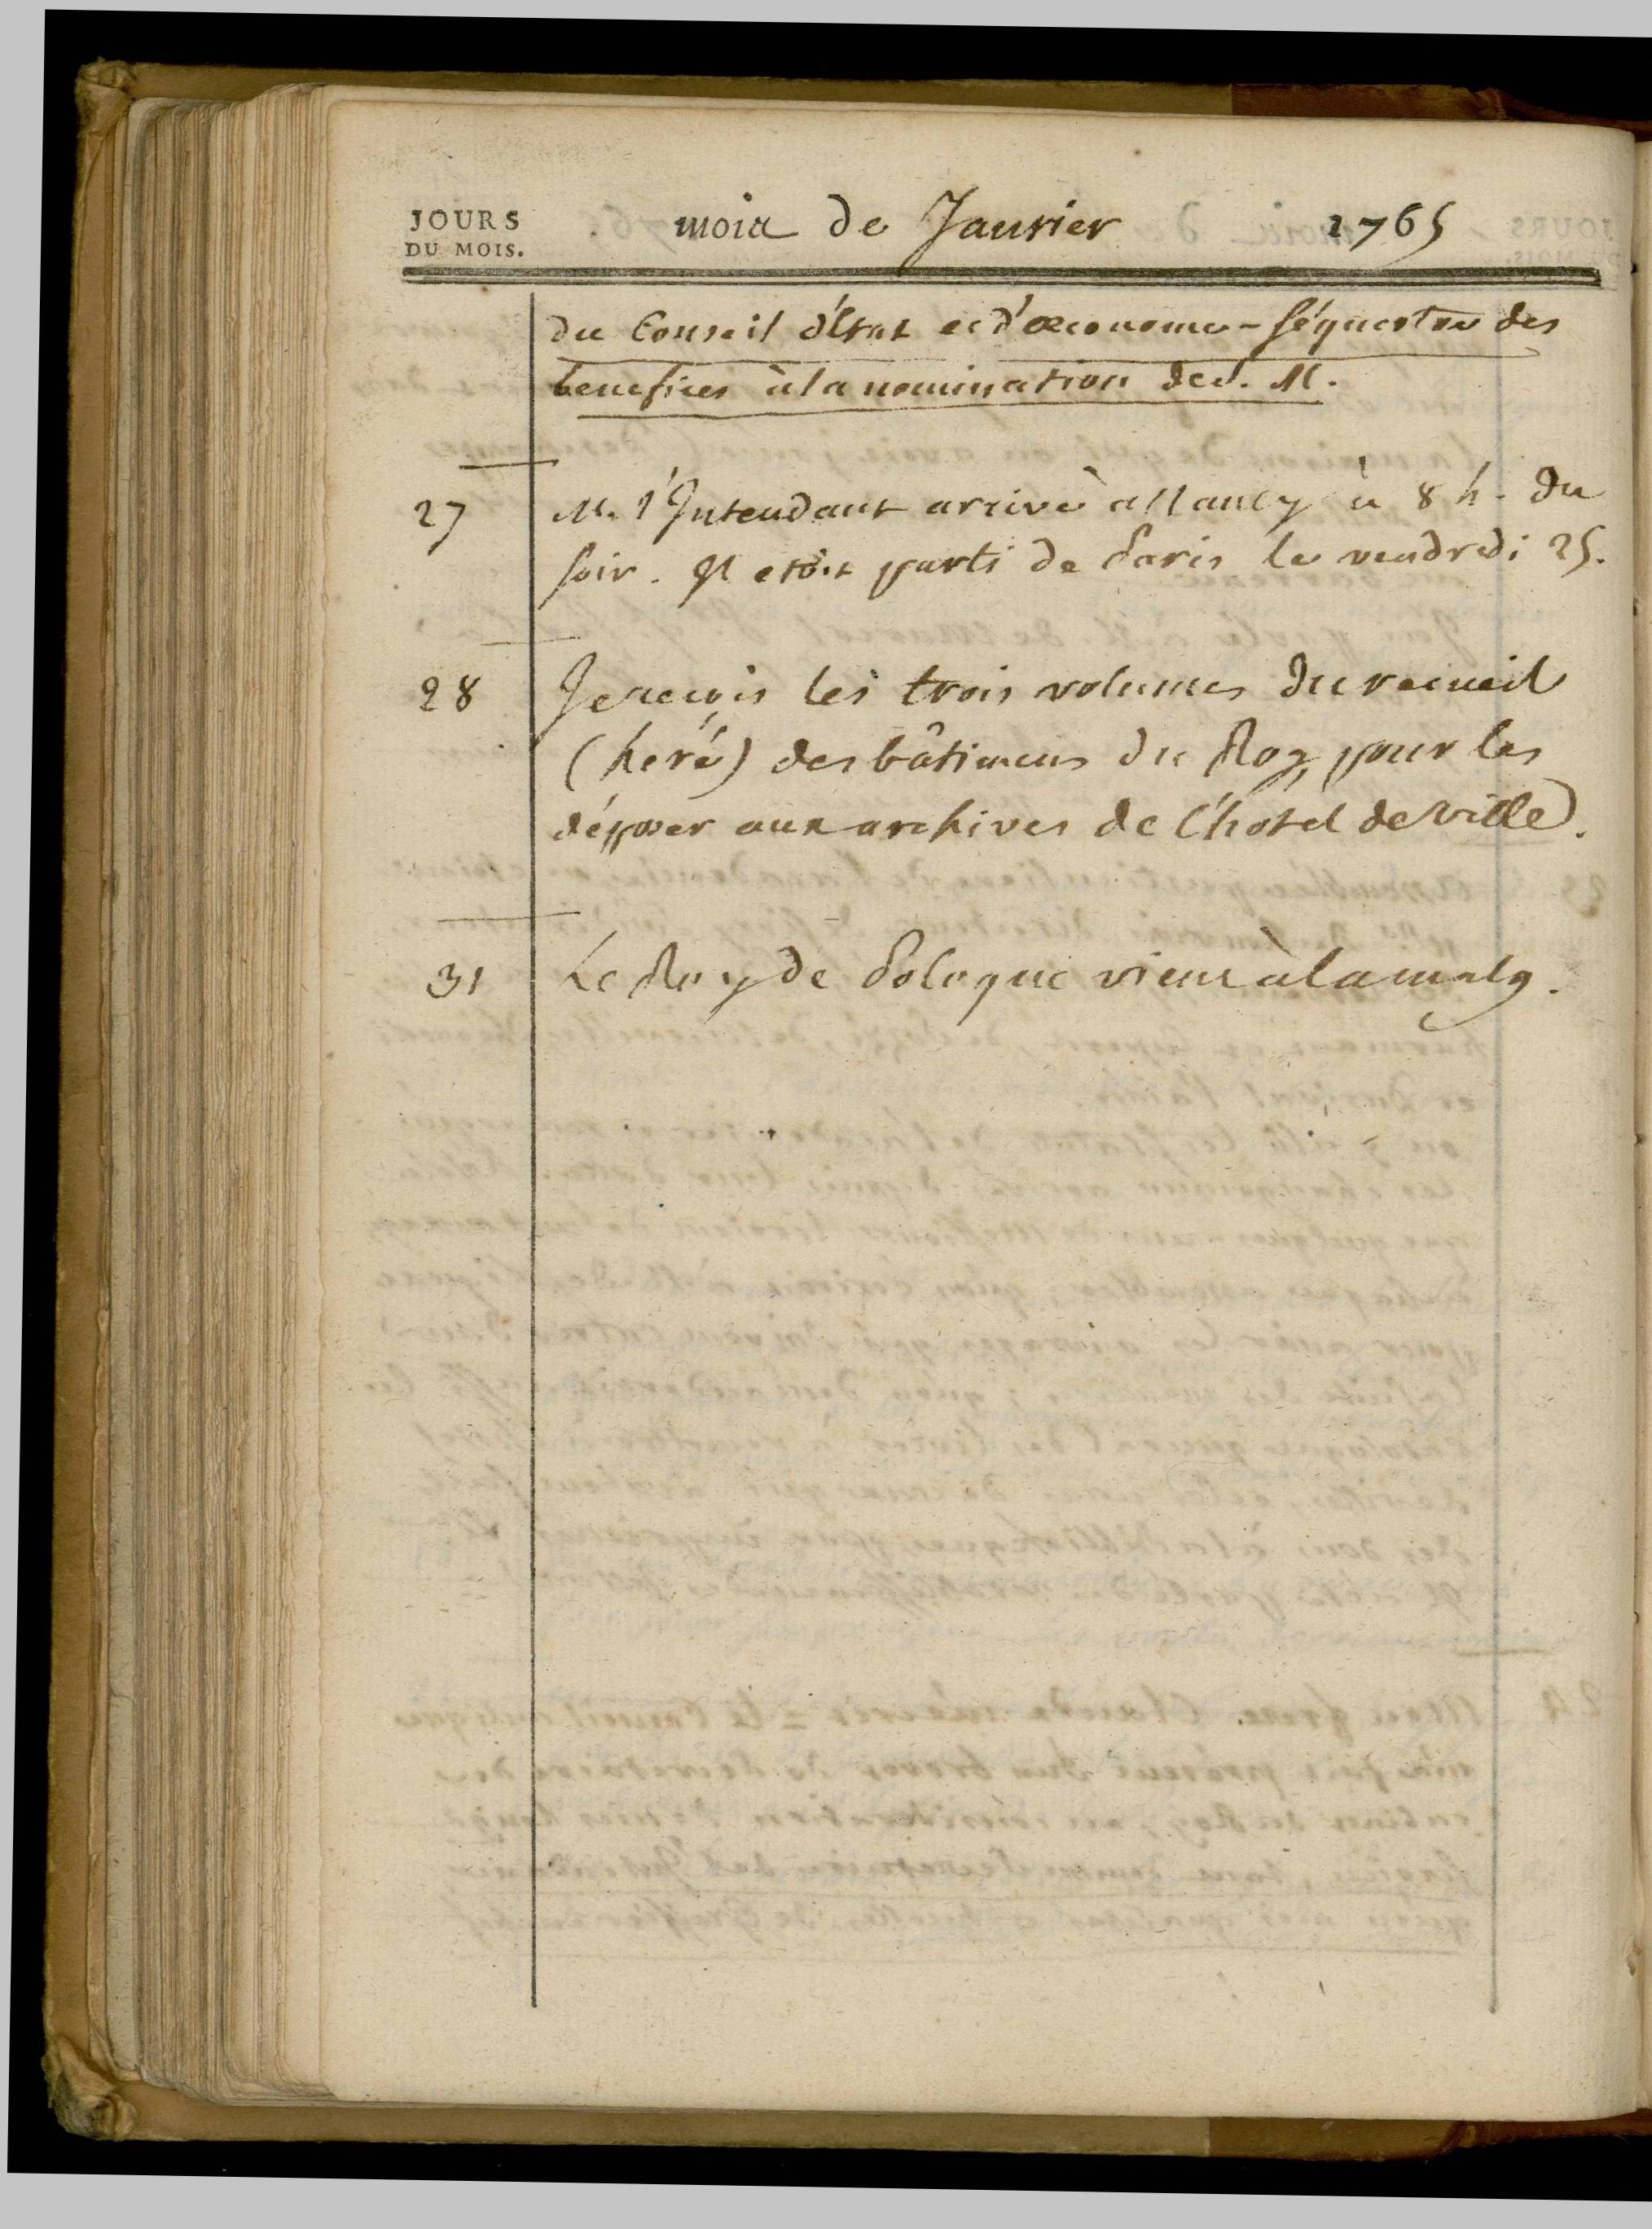 JOURS
DU MOIS.
mois de Janvier 1765
du Conseil d'État et d'œconome-séquestre des
benefices à la nomination de S. M.
27 M. l'Intendant arrive a Nancy à 8 h. du
soir. Il etoit parti de Paris le vendredi 25.
28 Je reçois les trois volumes du recueil
(heré) des bâtimens du Roy, pour les
déposer aux archives de l'hotel de Ville.
31 Le Roy de Pologne vient à la malg.